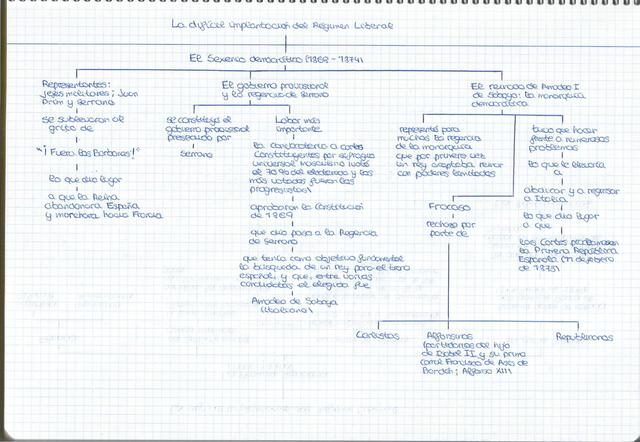 La difícil implantación del Régimen Liberal
El Sexenio democrático (1868-1874)
Representantes:
jefes militares; Juan
Prim y Serrano
se sublevaron al
grito de
"¡Fuera los Borbones!"
lo que dio lugar
a que la Reina
abandonara España
y marchara hacia Francia
El gobierno provisional
y la regencia de Serrano
se constituye el
gobierno provisional
presidido por
Serrano
Labor más
importante
la convocatoria a cortes
Constituyentes por sufragio
universal masculino (votó
el 70% del electorado y los
más votados fueron los
progresistas)
aprobaron la Constitución
de 1869
que dio paso a la Regencia
de Serrano
que tenía como objetivo fundamental
la búsqueda de un rey para el trono
español, y que, entre varios
candidatos el elegido fue
Amadeo de Saboya
(italiano)
El reinado de Amadeo I
de Saboya: la monarquía
democrática
representó para
muchos la regencia
de la monarquía
que por primera vez
un rey aceptaba reinar
con poderes limitados
Fracaso
rechazo por
parte de
Carlistas
Alfonsinos
(partidarios del hijo
de Isabel II y su primo
carnal Francisco de Asís de
Borbón; Alfonso XIII
Republicanos
tuvo que hacer
frente a numerosos
problemas
lo que le llevaría
a
abdicar y a regresar
a Italia
lo que dio lugar
a que
las Cortes proclamasen
la Primera República
Española (11 de febrero
de 1873)